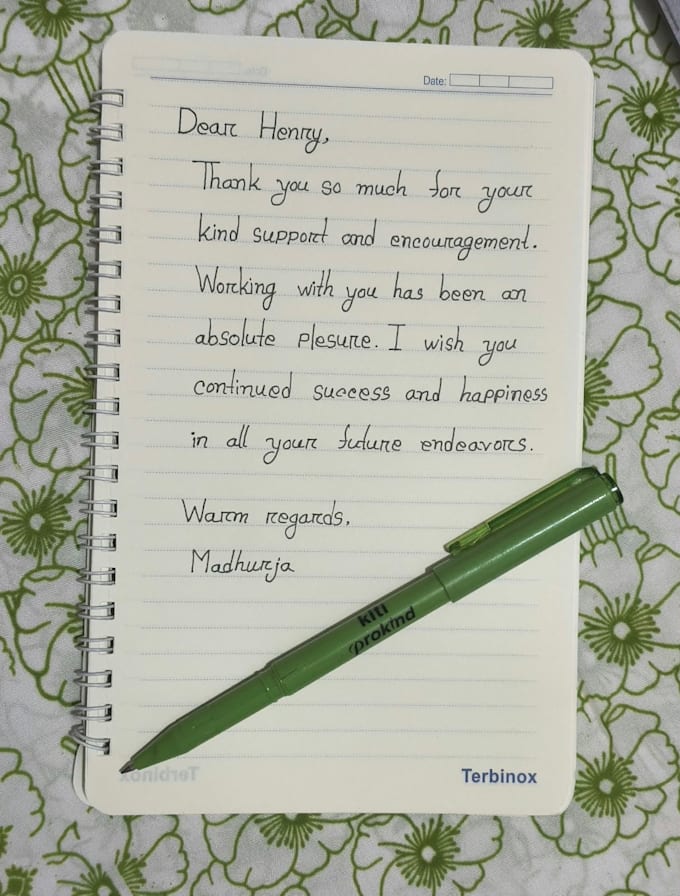 Date:
Dear Henry,
Thank you so much for your
kind support and encouragement.
Working with you has been an
absolute plesure. I wish you
continued success and happiness
in all your future endeavors.
Warm regards,
Madhurja
kiti
prokind
Terbinox